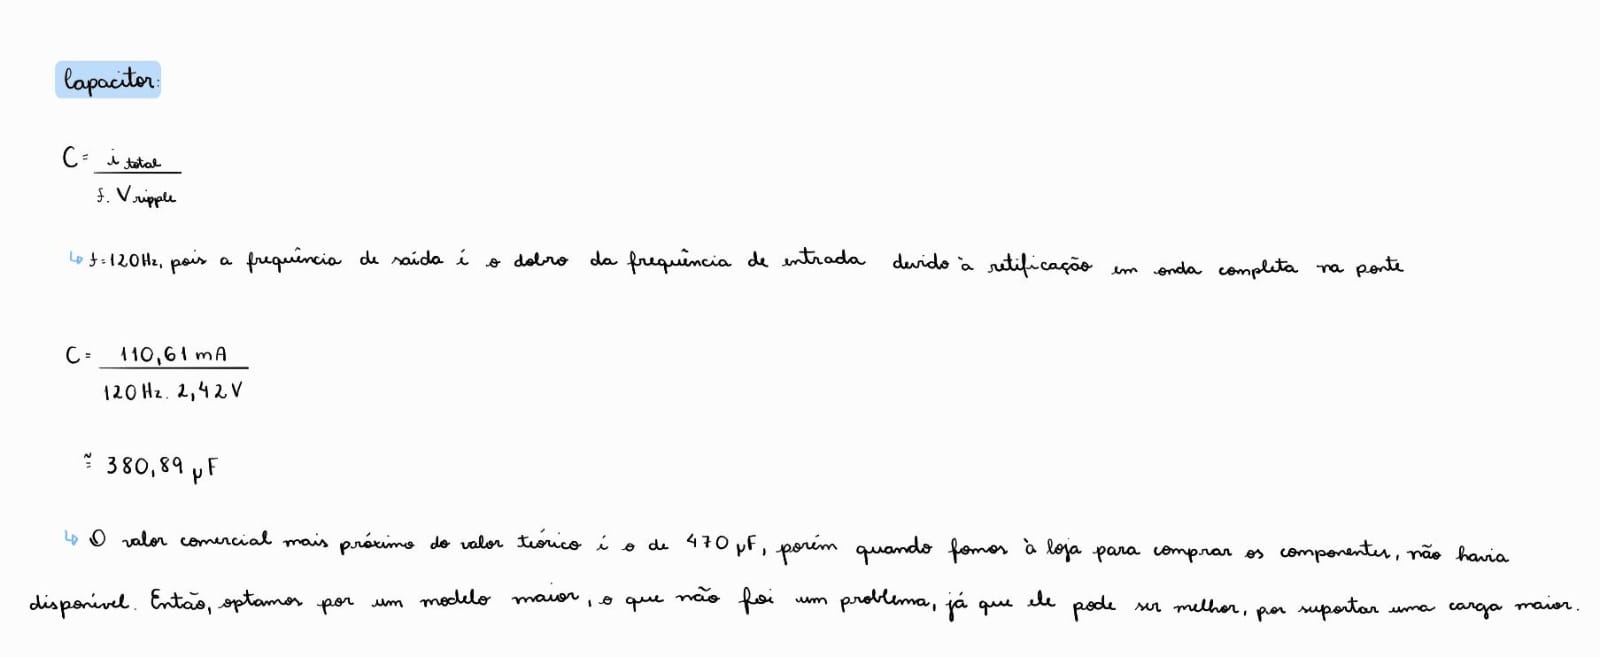 Capacitor:
C= i total
f. V ripple
↳ f=120Hz, pois a frequência de saída é o dobro da frequência de entrada devido à retificação em onda completa na ponte
C= 110,61 mA
120 Hz. 2,42 V
≅ 380,89 μF
↳ O valor comercial mais próximo do valor teórico é o de 470 μF, porém quando fomos à loja para comprar os componentes, não havia
disponível. Então, optamos por um modelo maior, o que não foi um problema, já que ele pode ser melhor, por suportar uma carga maior.